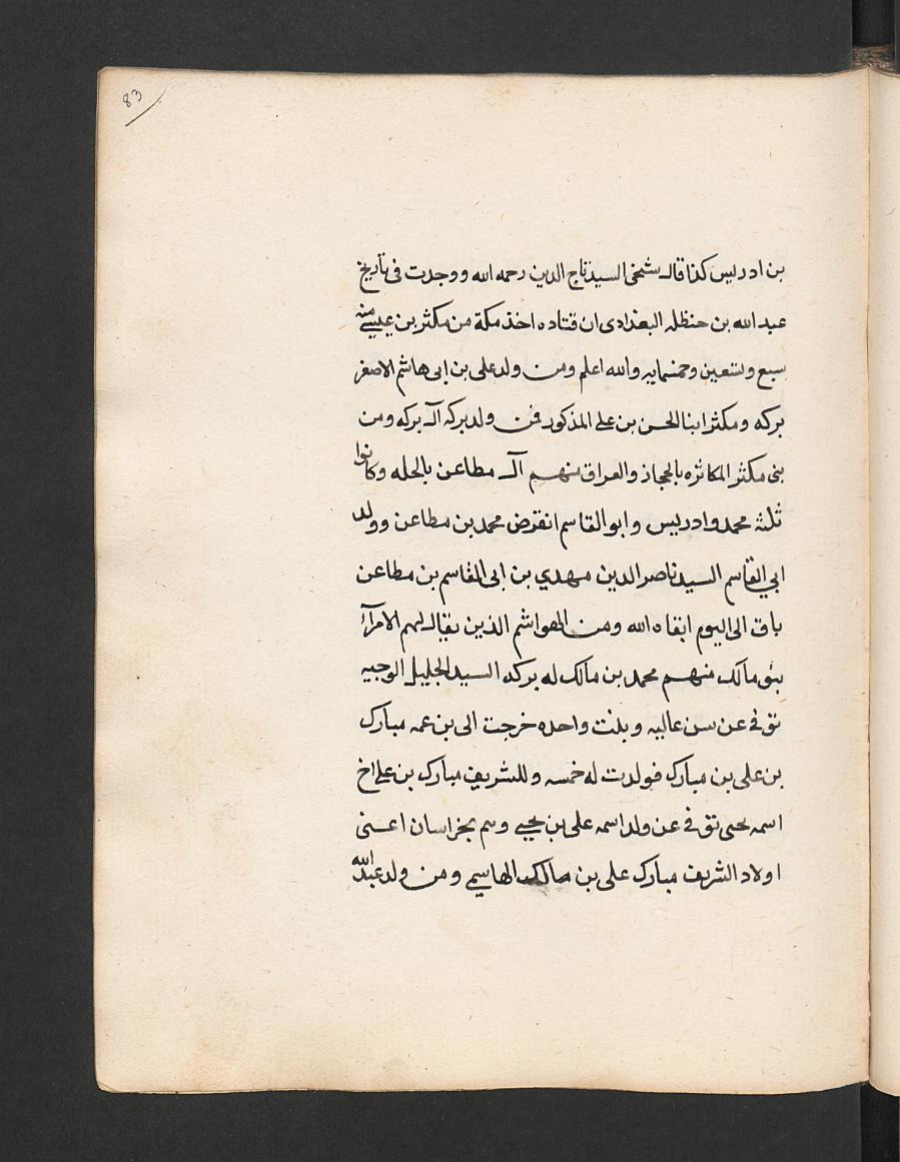 83
بن ادريس كذا قال شيخى السيد تاج الدين رحمه الله ووجدت فى تاريخ
عبد الله بن حنظله البغدادى ان قتاده اخذ مكة من مكثر بن عيسى سنه
سبع وتسعين وخمسمايه والله اعلم ومن ولد على بن ابى هاشم الاصغر
بركه ومكثر ابنا الحسن بن على المذكور فمن ولد بركه آل بركه ومن
بنى مكثر المكاثره بالحجاز والعراق منهم آل مطاعن بالحله وكانوا
ثلثة محمد وادريس وابو القاسم انقرض محمد بن مطاعن وولد
ابي القاسم السيد ناصر الدين مهدي بن ابى القاسم بن مطاعن
باق الى اليوم ابقاه الله ومن الهواشم الذين يقال لهم الامرآء
بنو مالك منهم محمد بن مالك له بركه السيد الجليل الوجيه
توفى عن سن عاليه وبنت واحده خرجت الى بن عمه مبارك
بن على بن مبارك فولدت له خمسه وللشريف مبارك بن على اخ
اسمه يحيى توفى عن ولد اسمه على بن يحيى وهم بخراسان اعنى
اولاد الشريف مبارك على بن مالك الهاسمي ومن ولد عبد الله